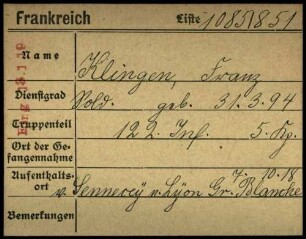 Frankreich Liste 1085/851
Name Klingen, Franz
Dienstgrad Sold. geb. 31.3.94
Truppenteil 122. Inf. 5. Kp.
Ort der Ge-
fangennahme
7.10.18
Aufenthalts-
ort v. Sennecey v. Lyon Gr. Blanche
Bemerkungen